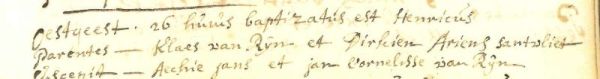 oestgeest. 26 huius baptizatus est Henricus
Parentes — Klaes van Rÿn et Dirkien Ariens santvliet
Suscepit — Aechie Jans et jan Cornelisse van Rÿn